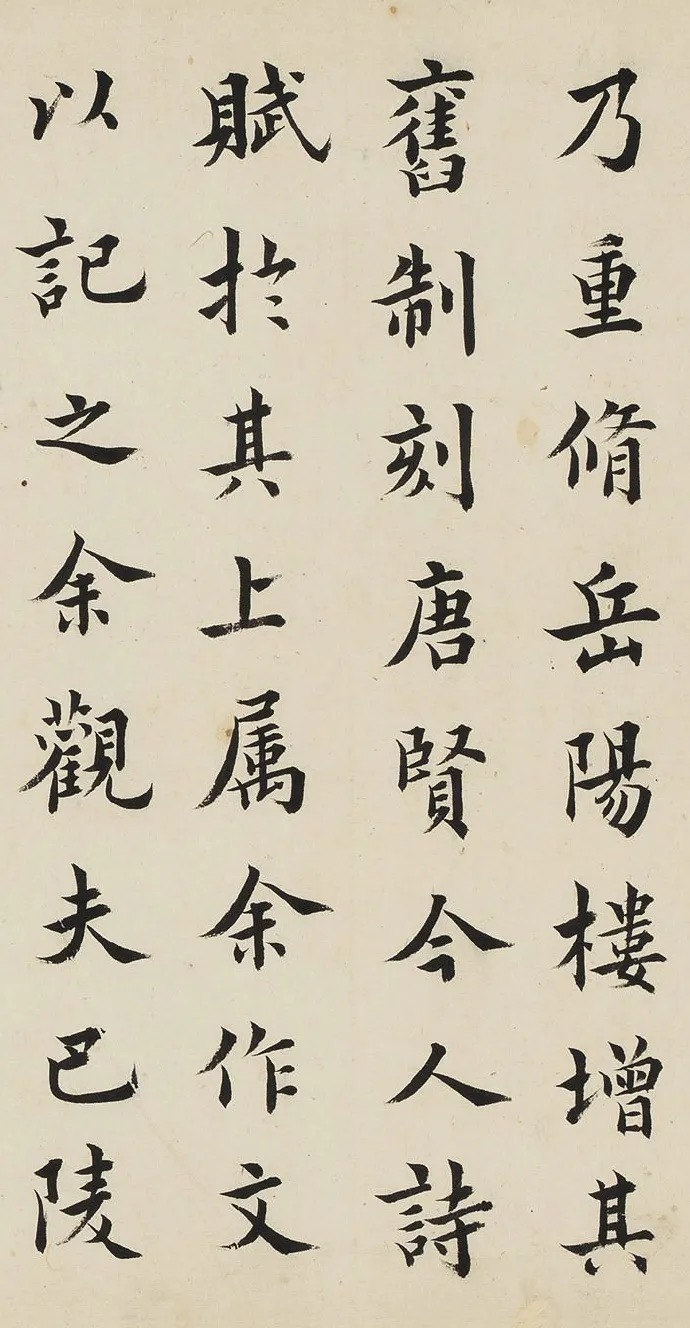 乃重脩岳陽樓增其
舊制刻唐賢今人詩
賦於其上属余作文
以記之余觀夫巴陵